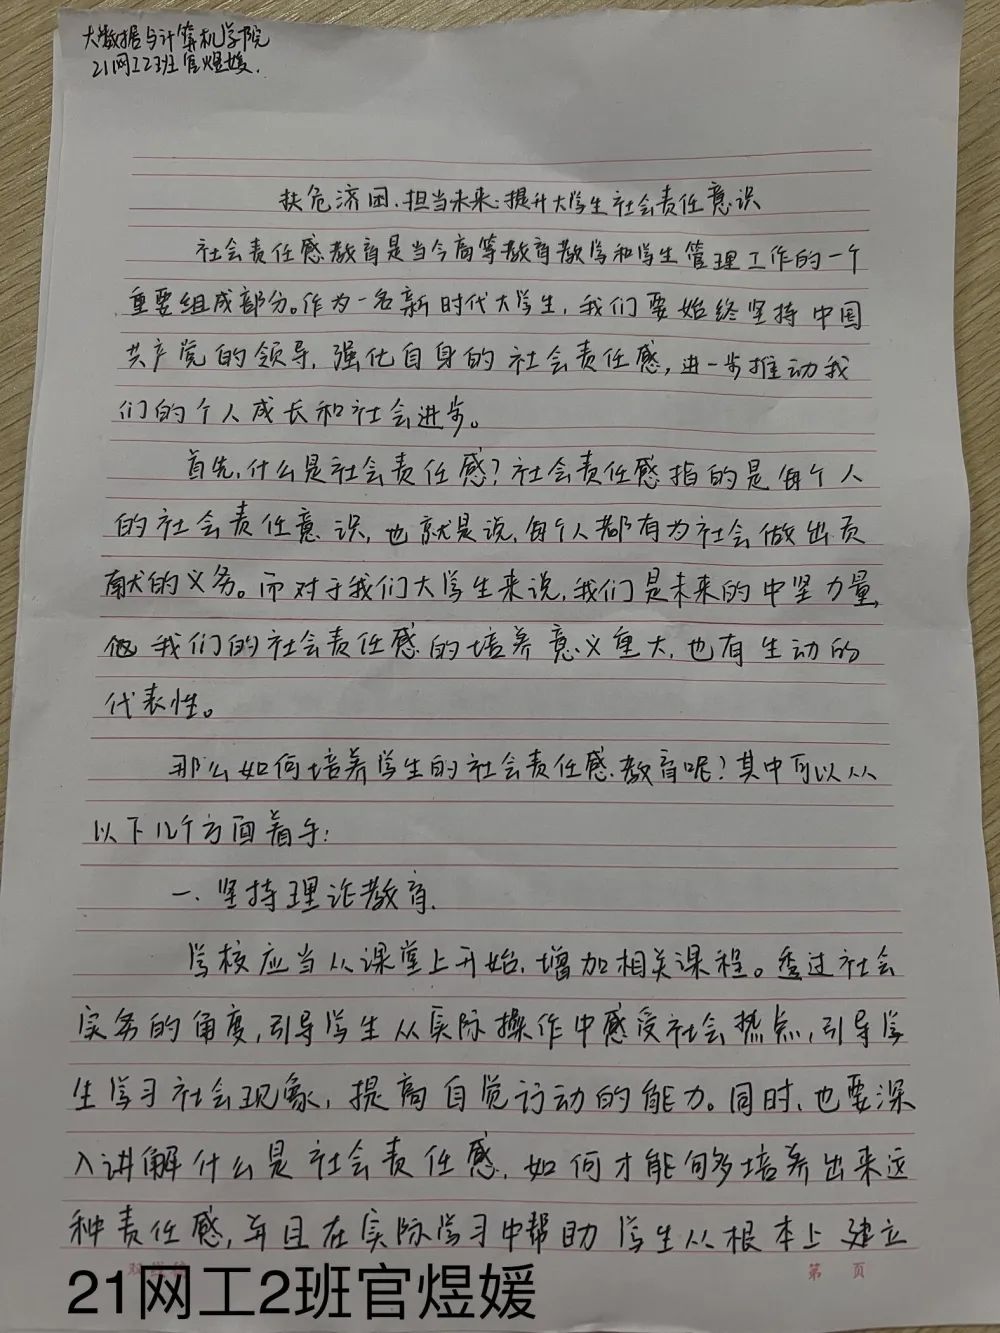 大数据与计算机学院
21网工2班官煜媛.
扶危济困、担当未来:提升大学生社会责任意识
社会责任感教育是当今高等教育教学和学生管理工作的一个
重要组成部分。作为一名新时代大学生,我们要始终坚持中国
共产党的领导,强化自身的社会责任感,进一步推动我
们的个人成长和社会进步。
首先,什么是社会责任感?社会责任感指的是每个人
的社会责任意识,也就是说,每个人都有为社会做出贡
献的义务。而对于我们大学生来说,我们是未来的中坚力量,
我们的社会责任感的培养意义重大,也有生动的
代表性。
那么如何培养学生的社会责任感教育呢?其中可以从
以下几个方面着手:
一、坚持理论教育.
学校应当从课堂上开始,增加相关课程。透过社会
实务的角度,引导学生从实际操作中感受社会热点,引导学
生学习社会现象,提高自觉行动的能力。同时,也要深
入讲解什么是社会责任感,如何才能够培养出来这
种责任感,并且在实际学习中帮助学生从根本上建立
第 页
21网工2班官煜媛